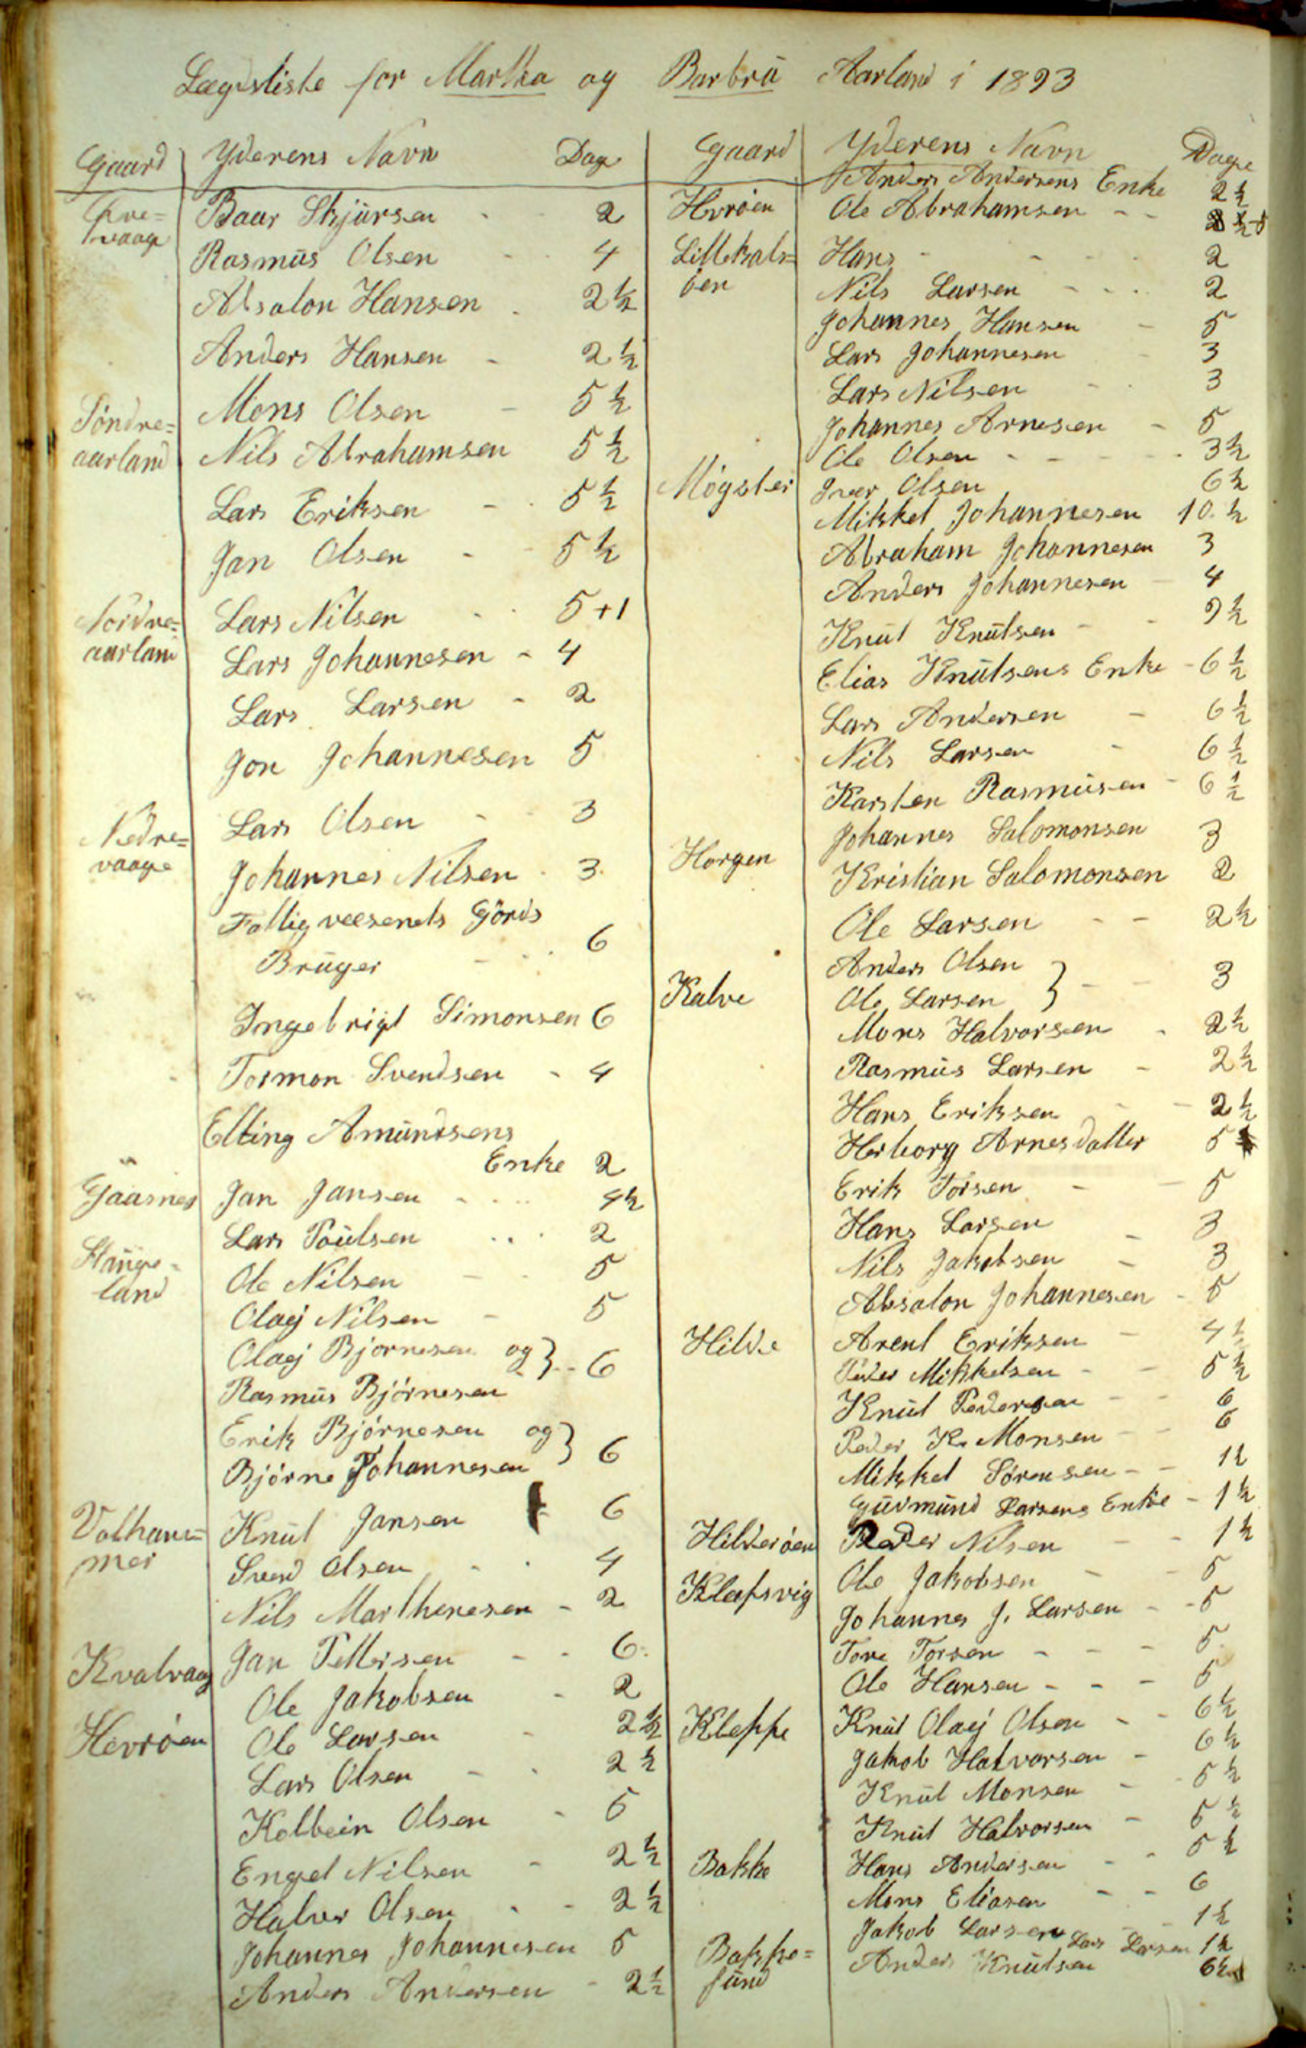 Lægdsliste for Martha og Barbru Aarland i 1893
Gaard Yderens Navn Dage
vaage Baar Skjursen - - 2
Rasmus Olsen - - 4
Absalon Hansen . 2 1/2
Anders Hansen - 2 1/2
Söndre= Mons Olsen - 5 1/2
aarland Nils Abrahamsen 5 1/2
Lars Eriksen - - 5 1/2
Jan Olsen - - 5 1/2
Nordre= Lars Nilsen - - 5+1
aarland Lars Johannesen - 4
Lars Larsen - 2
Jon Johannesen 5
Nedre= Lars Olsen - - 3
vaage Johannes Nilsen - 3
Fattigvæsenets Gjords
Bruger - - 6
Ingebrigt Simonsen 6
Tormon Svendsen - 4
Elling Amundsens
Enke 2
Gaasnes Jan Jansen - - - - 4 1/2
Lars Poulsen - - - 2
Stange-
land Ole Nilsen - - 5
Olaej Nilsen - 5
Olaej Bjornesen og } - - 6
Rasmus Bjørnesen
Erik Bjørnesen og } 6
Bjørne Johannesen
Valham= Knut Jansen 6
mer Svend Olsen - - 4
Nils Marthenesen - 2
Kvalvaag Jan Pettersen - - 6
Ole Jakobsen - 2
Hevrøen Ole Larsen - 2 1/2
Lars Olsen - - 2 1/2
Kolbein Olsen - 5
Engel Nilsen - 2 1/2
Halvor Olsen - - 2 1/2
Johannes Johannesen 5
Anders Andersen - 2 1/2
Gaard Yderens Navn Dage
Anders Andersens Enke 2 1/2
Hvrøen Ole Abrahamsen - -
Lillekals= Hans - - - - 2
øen Nils Larsen - - - 2
Johannes Hansen - 5
Lars Johannesen - 3
Lars Nilsen - - 3
Johannes Arnesen - 5
Ole Olsen - - - - 3 1/2
Møgster Iver Olsen 6 1/2
Mikkel Johannesen 10 1/2
Abraham Johannesen 3
Anders Johannesen - 4
Knut Knutsen - -
Elias Knutsens Enke - 6 1/2
Lars Andersen - 6 1/2
Nils Larsen - 6 1/2
Karsten Rasmusen - 6 1/2
Johannes Salomonsen 3
Horgen Kristian Salomonsen 2
Ole Larsen - - 2 1/2
Anders Olsen } - - 3
Kalve Ole Larsen
Mons Halvorsen - 2 1/2
Rasmus Larsen - 2 1/2
Hans Eriksen - - 2 1/2
Herborg Arnesdatter 5
Erik Torsen - - 5
Hans Larsen - 3
Nils Jakobsen - 3
Absalon Johannesen - 5
Hilde Arent Eriksen - 4 1/2
Peder Mikkelsen - - 5 1/2
Knut Pedersen - - 6
Peder K. Monsen - - 6
Mikkel Sørensen - - 1 1/2
Gudmund Larsens Enke - 1 1/2
Hilderøen Peder Nilsen - - 1 1/2
Klæpsvig Ole Jakobsen - 5
Johannes J. Larsen - - 5
Tore Torsen - - - 5
Ole Hansen - - - 5
Kleppe Knut Olaej Olsen - - 6 1/2
Jakob Halvorsen - 6 1/2
Knut Monsen - - 5 1/2
Knut Halvorsen - 5 1/2
Bakke Hans Andersen - - 5 1/2
Mons Eliasen - - 6
Jakob Larsen - - 1 1/2
Lars Larsen 1 1/2
Bakke= Anders Knutsen 6 1/2
sund